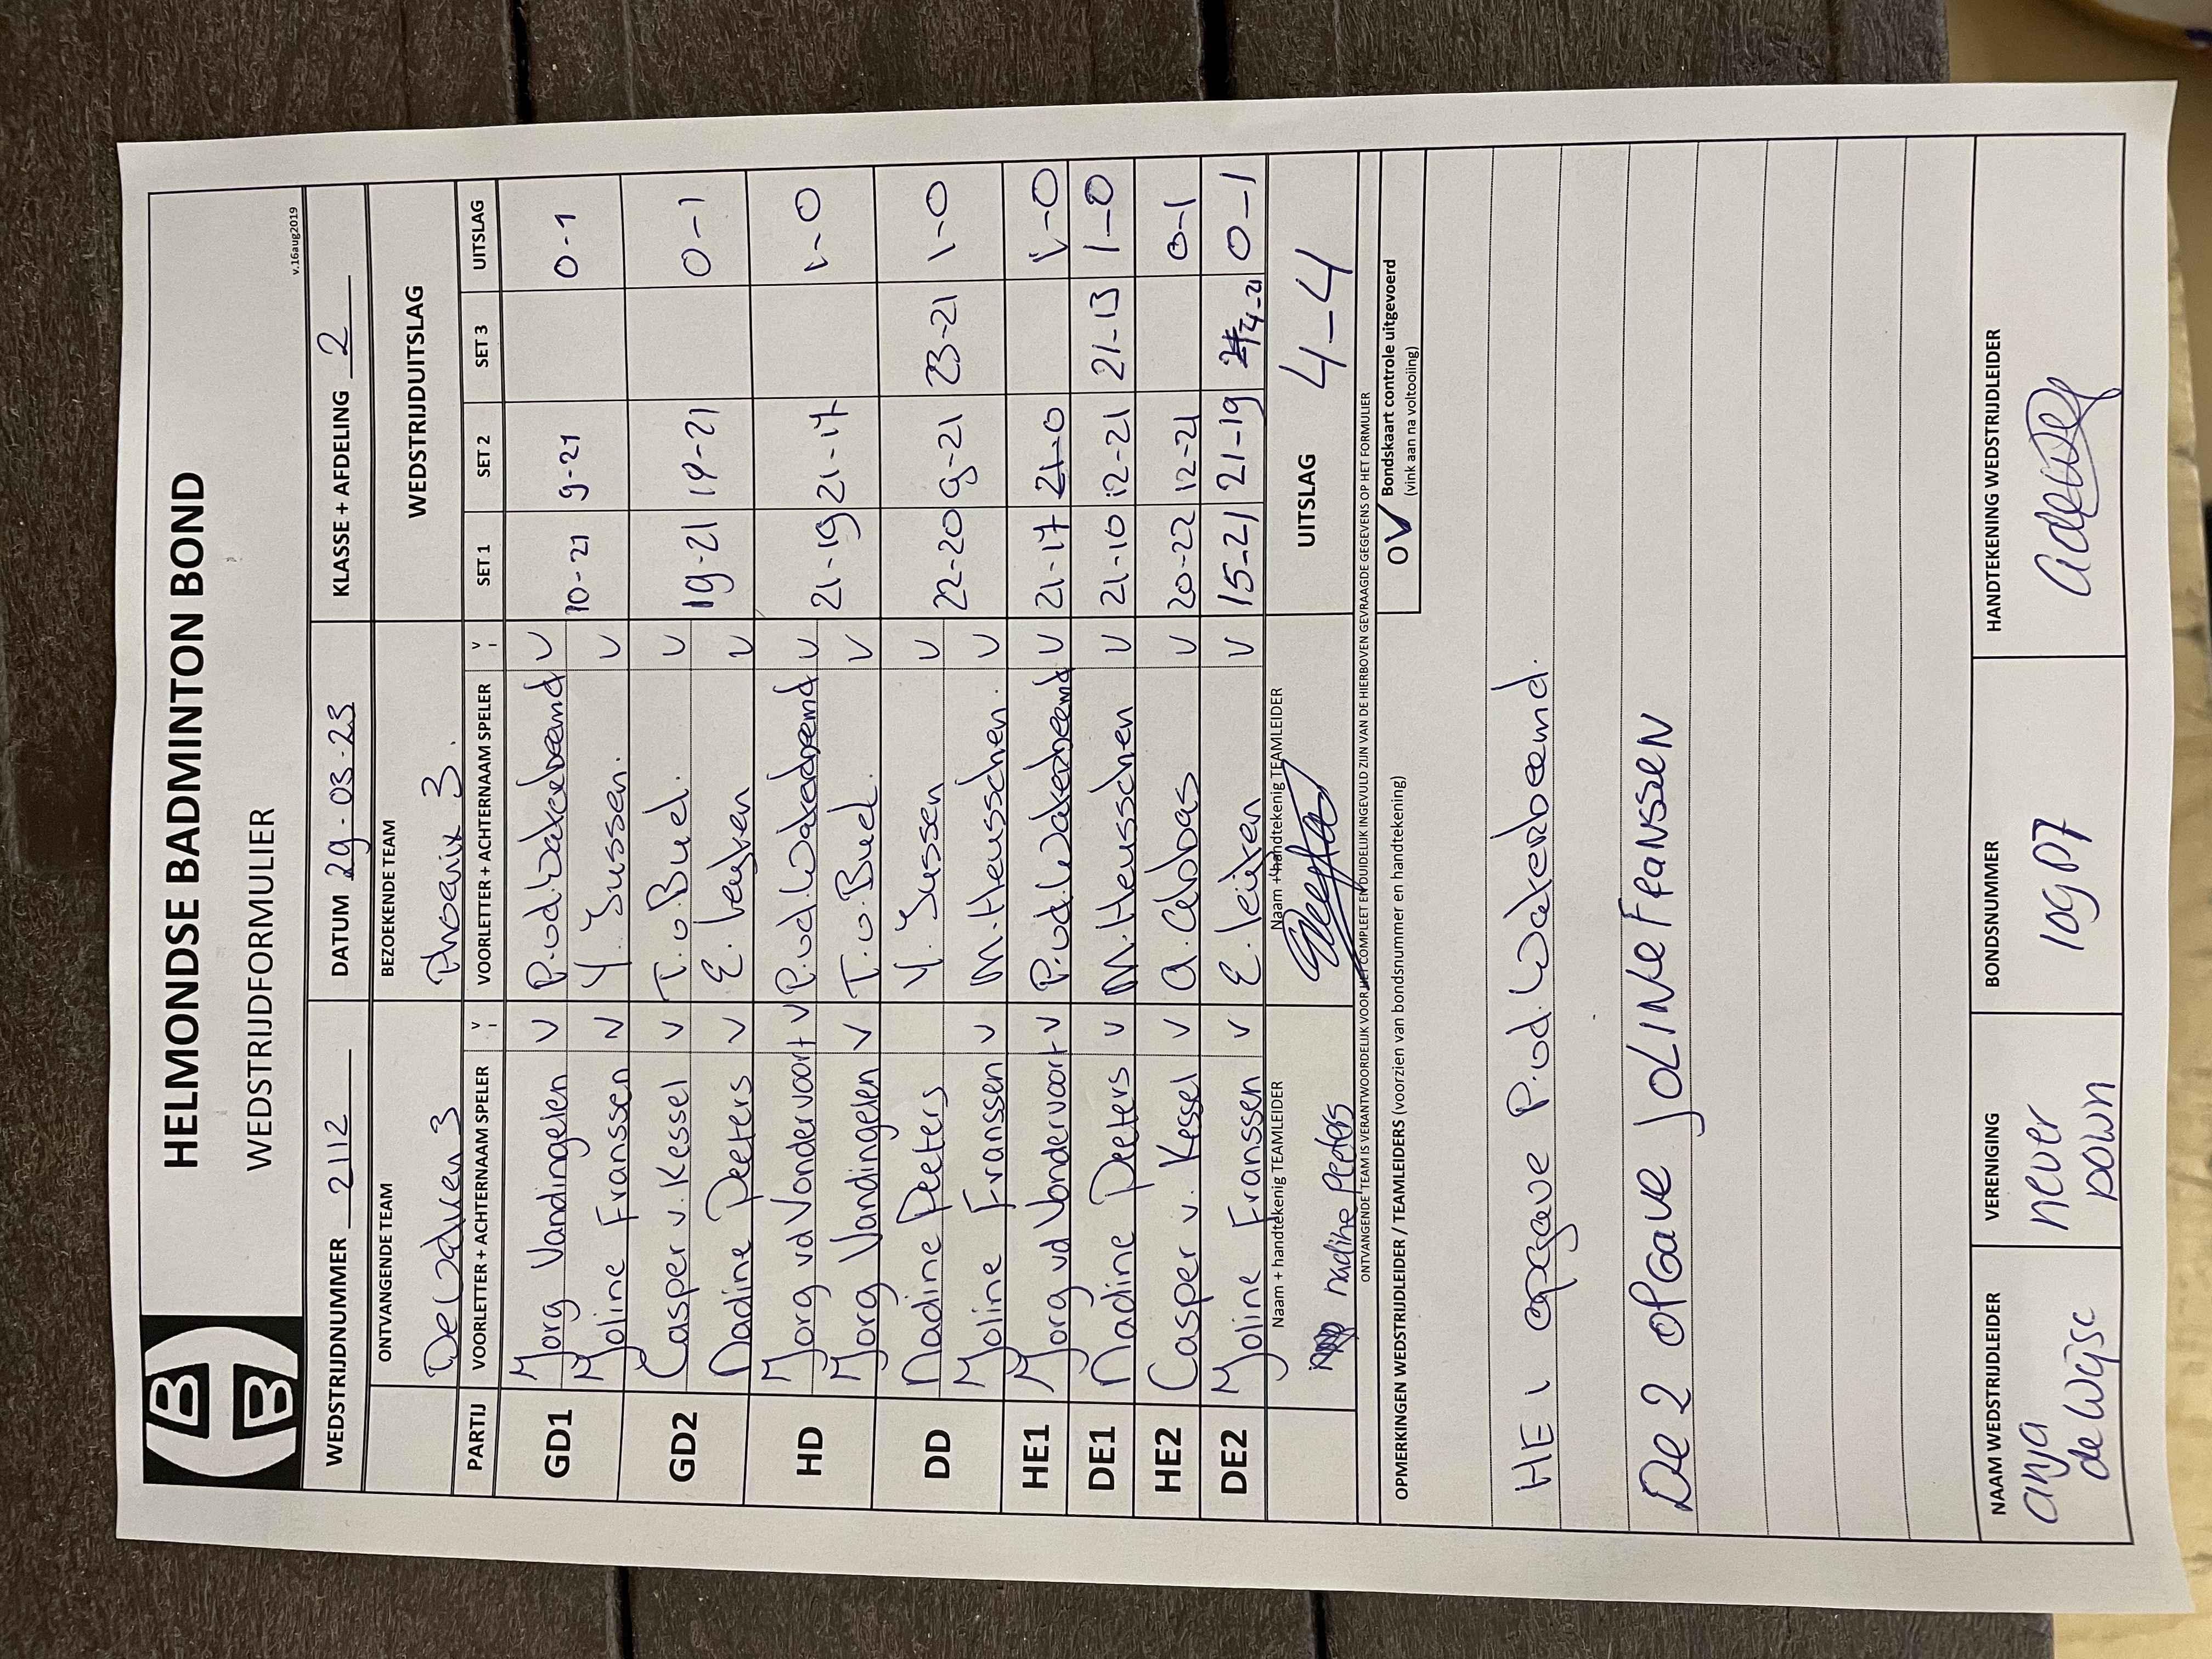 HELMONDSE BADMINTON BOND
WEDSTRIJDFORMULIER
v.16aug2019
WEDSTRIJDNUMMER 2112 DATUM 29-03-23 KLASSE + AFDELING 2
ONTVANGENDE TEAM BEZOEKENDE TEAM WEDSTRIJDUITSLAG
3 Phoenix 3.
PARTIJ VOORLETTER + ACHTERNAAM SPELER V VOORLETTER + ACHTERNAAM SPELER V SET 1 SET 2 SET 3 UITSLAG
GD1 Jorg Vandingelen V P.vd.Wakerbeemd V 10-21 9-21 0-1
Joline Franssen V Y. Jussen. V
GD2 Casper v. Kessel V T. v. Buel. V 19-21 19-21 0-1
Nadine Peeters V E. Leijten V
HD Jorg vd Vondervoort V P.vd.Wakerbeemd V 21-19 21-17 1-0
Jorg Vandingelen V T. v. Buel. V
DD Nadine Peeters Y. Jussen V 22-20 9-21 23-21 1-0
Joline Franssen V M. Heusschen. V
HE1 Jorg vd Vondervoort V P.vd.Wakerbeemd V 21-17 21-0 1-0
DE1 Nadine Peeters V M. Heusschen V 21-10 12-21 21-13 1-0
HE2 Casper v. Kessel V a. V 20-22 12-21 0-1
DE2 Joline Franssen V E. Leijten V 15-21 21-19 4-21 0-1
Naam + handtekenig TEAMLEIDER Naam + handtekenig TEAMLEIDER UITSLAG 4-4
nadine peeters
ONTVANGENDE TEAM IS VERANTWOORDELIJK VOOR HET COMPLEET EN DUIDELIJK INGEVULD ZIJN VAN DE HIERBOVEN GEVRAAGDE GEGEVENS OP HET FORMULIER
OPMERKINGEN WEDSTRIJDLEIDER / TEAMLEIDERS (voorzien van bondsnummer en handtekening)
O V Bondskaart controle uitgevoerd
(vink aan na voltooiing)
HE 1 opgave P.vd.Wakerbeemd.
De 2 opgave Joline Franssen
NAAM WEDSTRIJDLEIDER VERENIGING BONDSNUMMER HANDTEKENING WEDSTRIJDLEIDER
anja never 10907
de Wijse Down